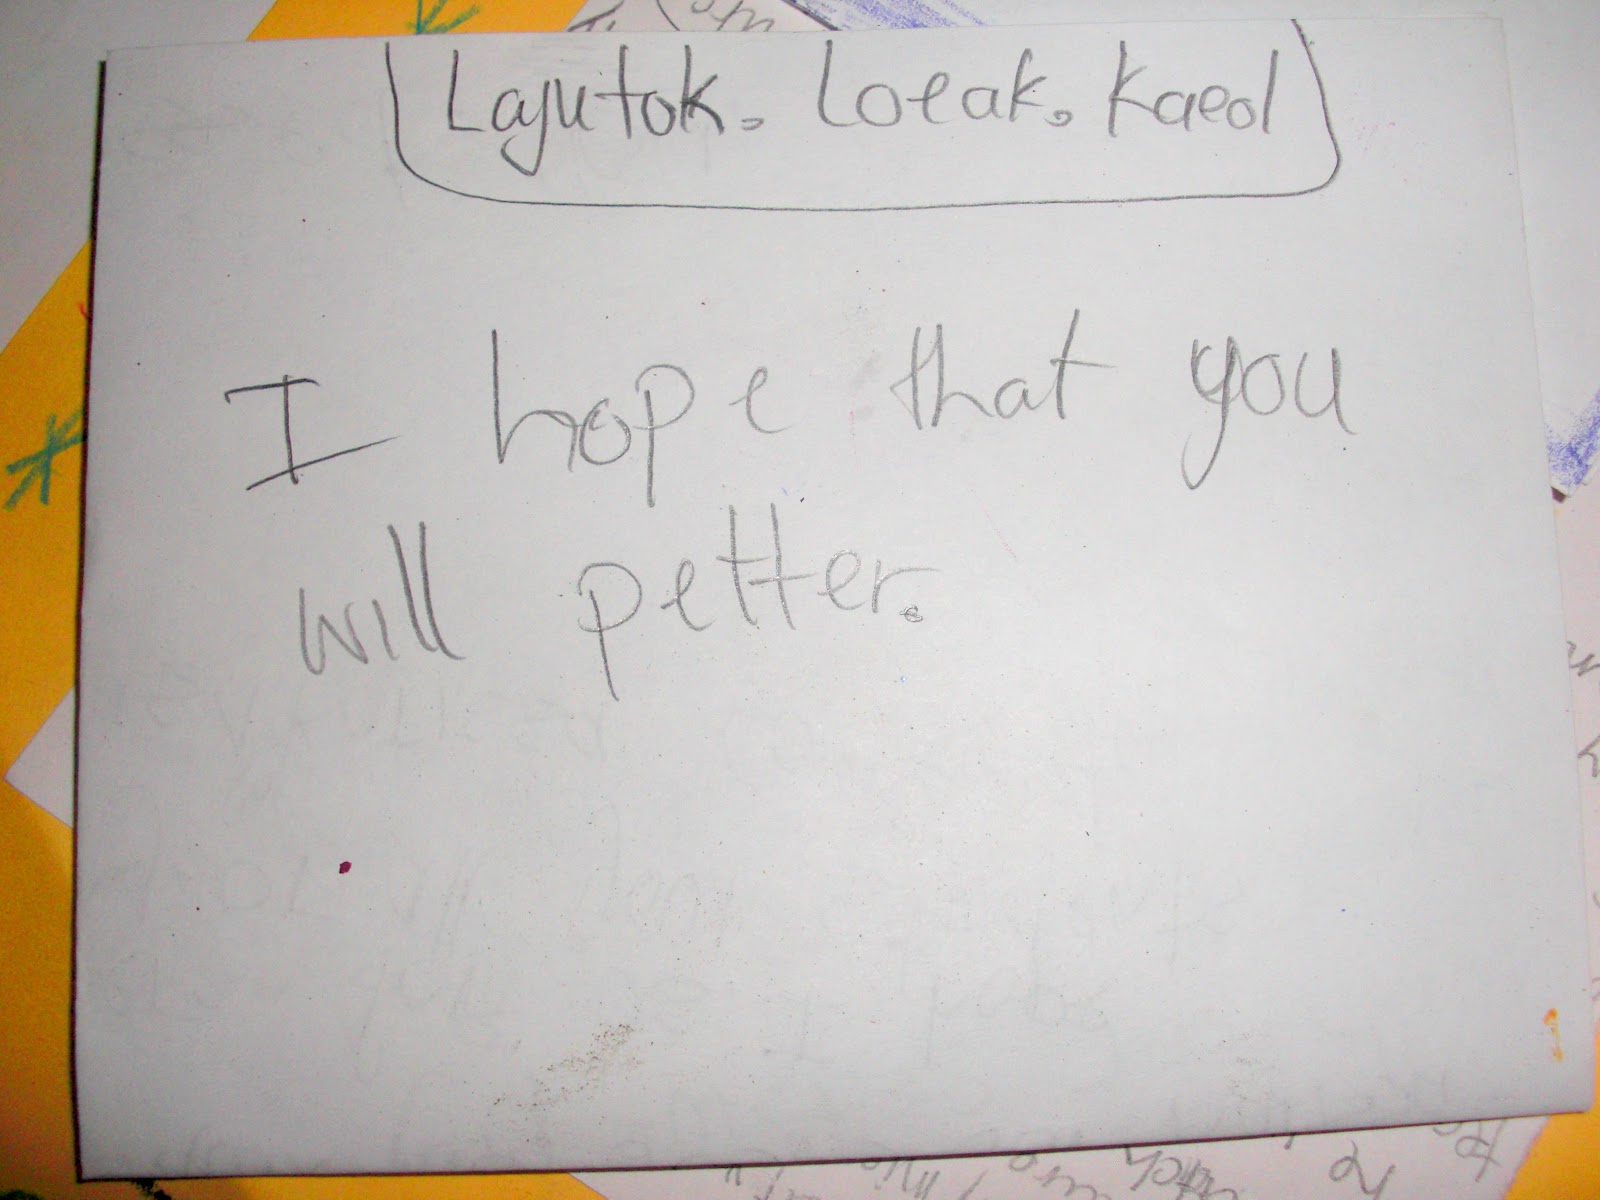 Lajutok. Loeak. Kaeol
I hope that you
will petter.